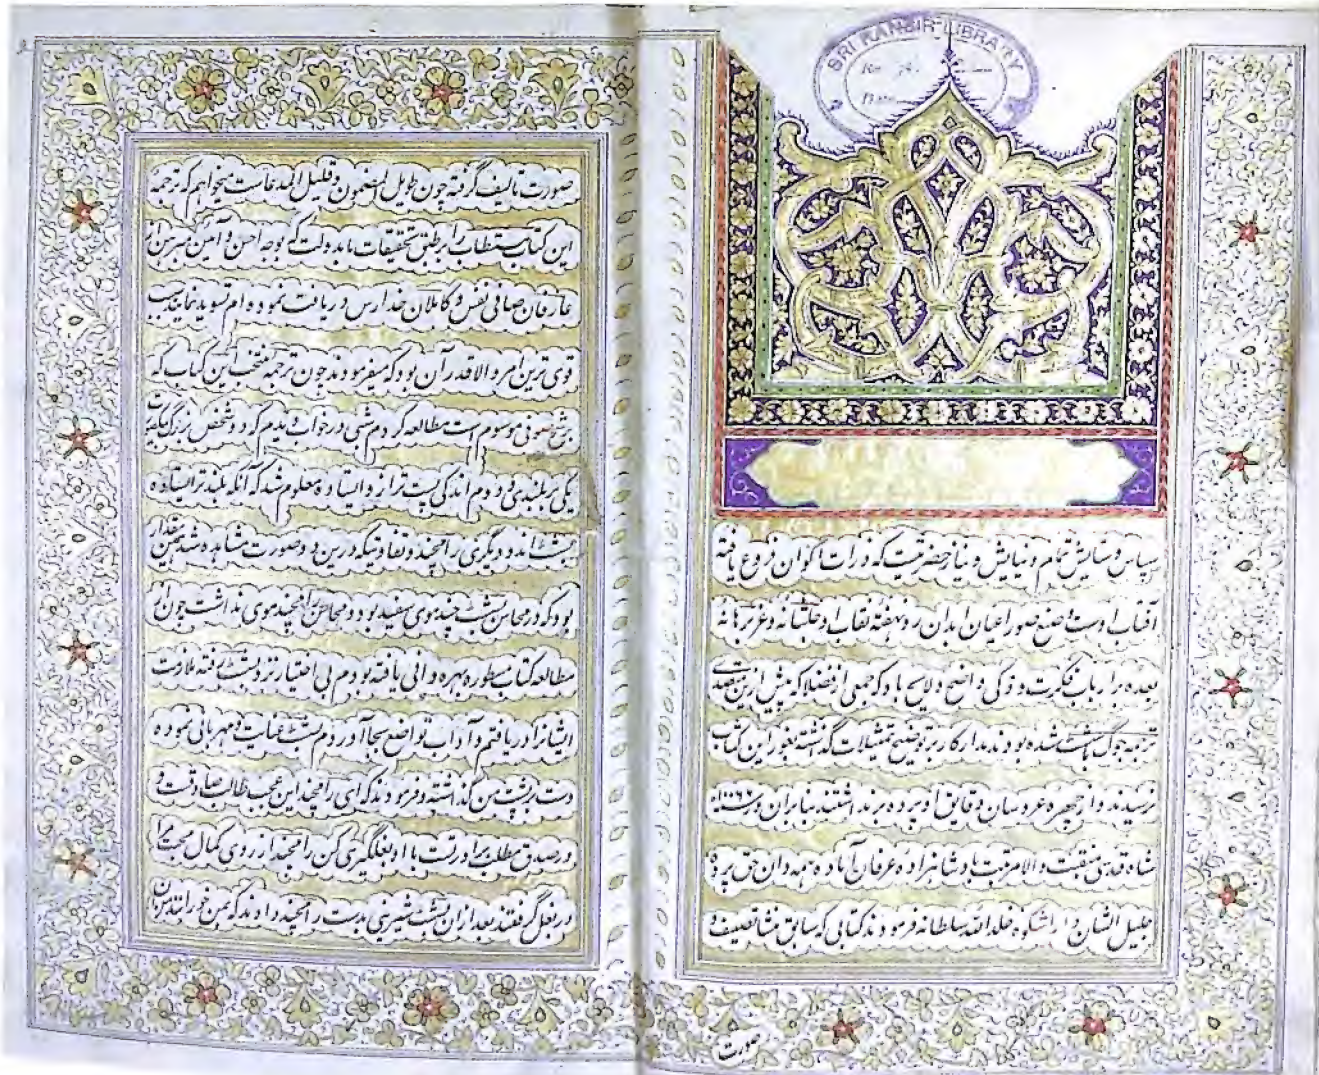 SRI RANBIR LIBRARY
No.
سپاس و ستایش تمام و نیایش و نیاز حضرتیست که ذرات اکوان فروغ یافتهٔ
آفتاب اوست صنع صور اعیان ابدان رو نهفته نقاب او
بعده بر ارباب فکرت و ذکی واضح و لایح باد که جمعی از فضلا که پیش ازین متصدی
ترجمه جوگ باشست شده بودند مدار کار بر توضیع تمثیلات گذشته بغور این کتاب
نرسیدند و از چهره عروسان دقایق او پرده برنداشتند بنابران در سنه ۱۰۶۶
شاه قدسی منقبت والا مرتبت بادشاهزاده عرفان آماده همه دان حق پژوه
جلیل الشان داراشکوه خلد الله سلطانه فرمودند کتابی که سابق منشا تصنیف و
صورت
صورت تالیف گرفته چون طویل المضمون و قلیل المدعاست میخواهم که ترجمه
این کتاب مستطاب را بر طبق تحقیقات ما بدولت که بوجه احسن و آمین مبرهن از
عارفان صافی نفس و کاملان خدارس دریافت نموده‌ام تسوید نماید سبب
قوی ترین امر والا قدر آن بود که میفرمودند چون ترجمه منتخب این کتاب که
بشیخ صوفی موسوم است مطالعه کردم شبی در خواب دیدم که دو شخص بزرگ
یکی بر بلندی و دوم اندکی پست تر از و ایستاده معلوم شد که آنکه بلندتر ایستاده
بشست اند و دیگری رامچند و تفاوتیکه درین دو صورت مشاهده شد همین
بود که در محاسن بشست چند موی سفید بود و محاسن رامچند موی نداشت چون از
مطالعه کتاب مسطوره بهره وافی یافته بودم بی اختیار نزد بشست رفته ملازمت
ایشانرا دریافتم و آداب تواضع بجا آوردم بشست عنایت و مهربانی نموده
دست بر پشت من گذاشته و فرمودند که ای رامچند این محب طالب صادقست و
در صدق مطلب برادر تست با او بغلگیری کن رامچند از روی کمال محبت مرا
در بغل گرفتند بعد ازان بشست شیرینی بدست رامچند دادند که بمن خورانند من